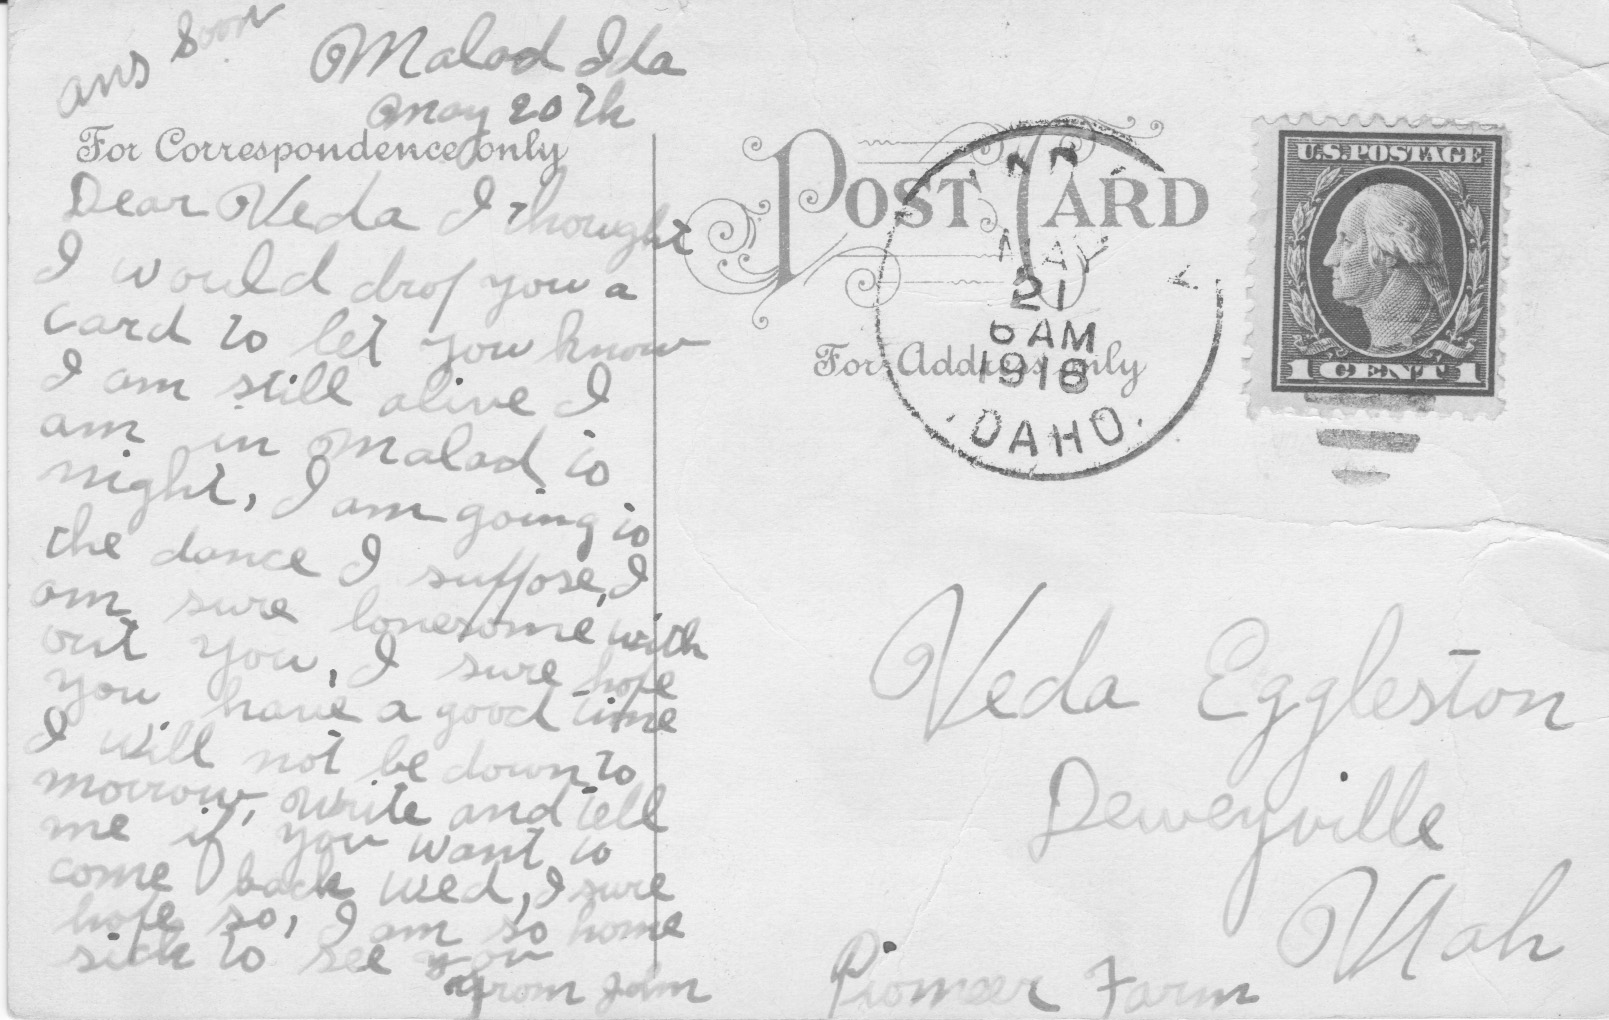 ans Soon
Malad Ida
May 20th
For Correspondence only
Dear Veda I thought
I would drop you a
card to let you know
I am still alive I
am in Malad to
night, I am going to
the dance I suppose, I
am sure lonesome with
out you, I sure hope
you have a good time
I will not be down to
morrow, write and tell
me if you want to
come back Wed, I sure
hope so, I am so home
sick to see you
from John
POST CARD
For Address only
MAY
21
6 AM
1916
IDAHO.
U.S. POSTAGE
1 CENT 1
Veda Eggleston
Deweyville
Utah
Pioneer Farm